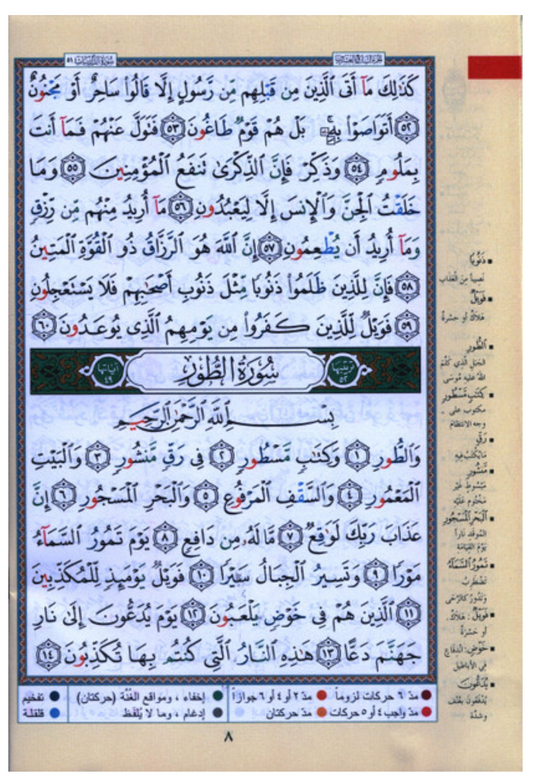 سُورَةُ الذَّارِيَاتِ ٥١
الجزء السابع والعشرون
كَذَٰلِكَ مَآ أَتَى ٱلَّذِينَ مِن قَبْلِهِم مِّن رَّسُولٍ إِلَّا قَالُوا۟ سَاحِرٌ أَوْ مَجْنُونٌ
۝٥٢ أَتَوَاصَوْا۟ بِهِۦ ۚ بَلْ هُمْ قَوْمٌ طَاغُونَ ۝٥٣ فَتَوَلَّ عَنْهُمْ فَمَآ أَنتَ
بِمَلُومٍ ۝٥٤ وَذَكِّرْ فَإِنَّ ٱلذِّكْرَىٰ تَنفَعُ ٱلْمُؤْمِنِينَ ۝٥٥ وَمَا
خَلَقْتُ ٱلْجِنَّ وَٱلْإِنسَ إِلَّا لِيَعْبُدُونِ ۝٥٦ مَآ أُرِيدُ مِنْهُم مِّن رِّزْقٍ
وَمَآ أُرِيدُ أَن يُطْعِمُونِ ۝٥٧ إِنَّ ٱللَّهَ هُوَ ٱلرَّزَّاقُ ذُو ٱلْقُوَّةِ ٱلْمَتِينُ
۝٥٨ فَإِنَّ لِلَّذِينَ ظَلَمُوا۟ ذَنُوبًا مِّثْلَ ذَنُوبِ أَصْحَٰبِهِمْ فَلَا يَسْتَعْجِلُونِ
۝٥٩ فَوَيْلٌ لِّلَّذِينَ كَفَرُوا۟ مِن يَوْمِهِمُ ٱلَّذِى يُوعَدُونَ ۝٦٠
ترتيبها ٥٢ سُورَةُ الطُّورِ آياتها ٤٩
بِسْمِ ٱللَّهِ ٱلرَّحْمَٰنِ ٱلرَّحِيمِ
وَٱلطُّورِ ۝١ وَكِتَٰبٍ مَّسْطُورٍ ۝٢ فِى رَقٍّ مَّنشُورٍ ۝٣ وَٱلْبَيْتِ
ٱلْمَعْمُورِ ۝٤ وَٱلسَّقْفِ ٱلْمَرْفُوعِ ۝٥ وَٱلْبَحْرِ ٱلْمَسْجُورِ ۝٦ إِنَّ
عَذَابَ رَبِّكَ لَوَٰقِعٌ ۝٧ مَّا لَهُۥ مِن دَافِعٍ ۝٨ يَوْمَ تَمُورُ ٱلسَّمَآءُ
مَوْرًا ۝٩ وَتَسِيرُ ٱلْجِبَالُ سَيْرًا ۝١٠ فَوَيْلٌ يَوْمَئِذٍ لِّلْمُكَذِّبِينَ
۝١١ ٱلَّذِينَ هُمْ فِى خَوْضٍ يَلْعَبُونَ ۝١٢ يَوْمَ يُدَعُّونَ إِلَىٰ نَارِ
جَهَنَّمَ دَعًّا ۝١٣ هَٰذِهِ ٱلنَّارُ ٱلَّتِى كُنتُم بِهَا تُكَذِّبُونَ ۝١٤
▪ ذَنُوبًا
نصيباً من العذاب
▪ فَوَيْلٌ
هلاك أو حسرة
▪ الطُّورِ
الجبل الذي كلم
الله عليه موسى
▪ كِتَابٍ مَّسْطُورٍ
مكتوب على
وجه الانتظام
▪ رَقٍّ
ما يكتب فيه
▪ مَنْشُورٍ
مبسوط غير
مختوم عليه
▪ الْبَحْرِ الْمَسْجُورِ
الموقد ناراً
يوم القيامة
▪ تَمُورُ السَّمَاءُ
تضطرب
وتدور كالرحى
▪ فَوَيْلٌ: هلاك
أو حسرة
▪ خَوْضٍ: اندفاع
في الأباطيل
▪ يُدَعُّونَ
يدفعون بعنف
وشدة
مدّ ٦ حركات لزوماً ● مدّ ٢ أو ٤ أو ٦ جوازاً ● إخفاء ، ومواقع الغُنَّة (حركتان) ● تفخيم
مدّ واجب ٤ أو ٥ حركات ● مدّ حركتان ● إدغام ، وما لا يُلفَظ ● قلقلة
٨